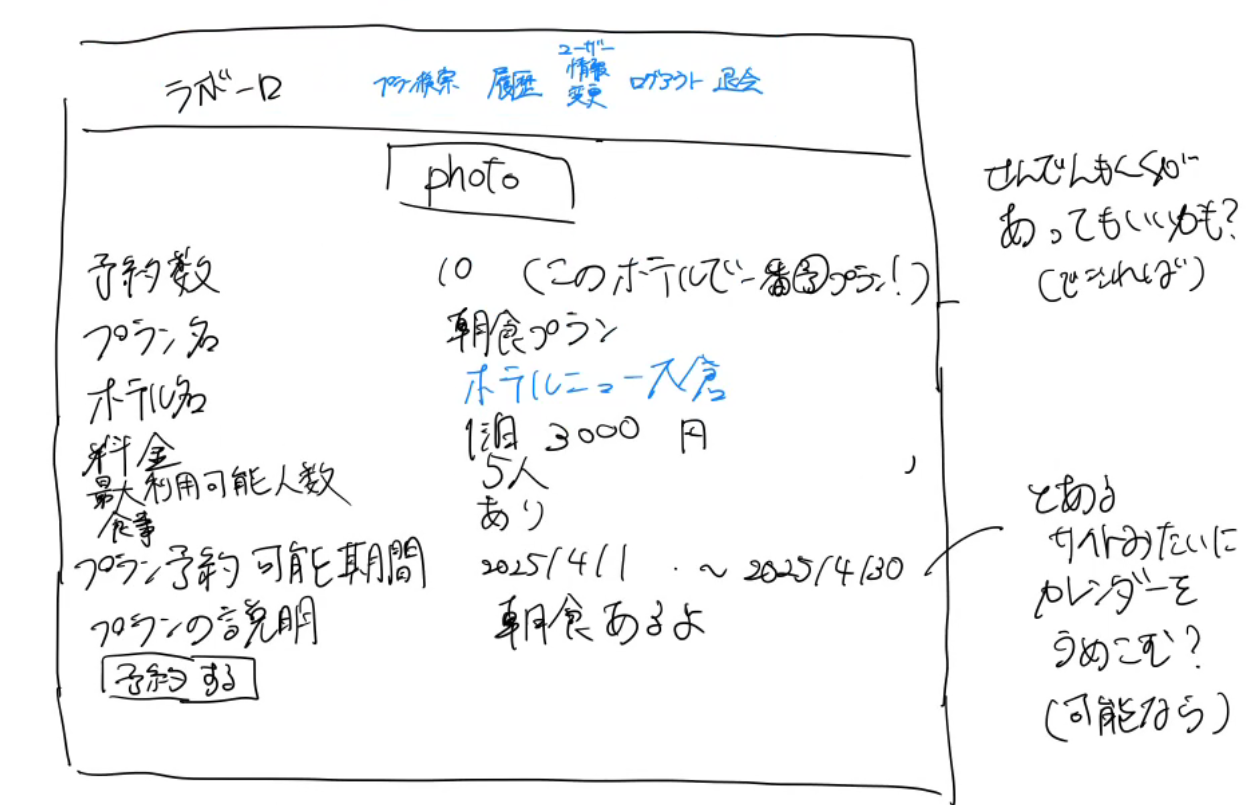 ラボーロ プラン検索 履歴 ユーザー情報変更 ログアウト 退会
photo
予約数 10 (このホテルで一番のプラン!)
プラン名 朝食プラン
ホテル名 ホテルニュー大倉
料金 1泊 3000 円
最大利用可能人数 5人
食事 あり
プラン予約可能期間 2025/4/1 ~ 2025/4/30
プランの説明 朝食あるよ
予約する
せんでんもくが
あってもいいかも?
(できれば)
とある
サイトみたいに
カレンダーを
うめこむ?
(可能なら)